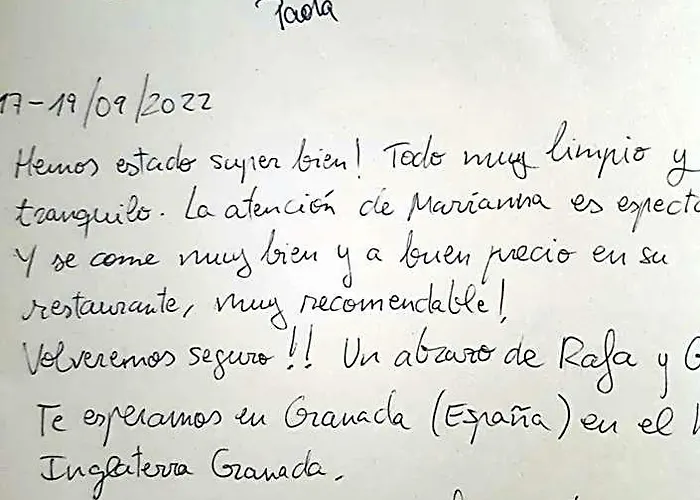 Paola
17-19/09/2022
Hemos estado super bien! Todo muy limpio y
tranquilo. La atención de Marianna es espect
Y se come muy bien y a buen precio en su
restaurante, muy recomendable!
Volveremos seguro!! Un abrazo de Rafa y
Te esperamos en Granada (España) en el
Inglaterra Granada.